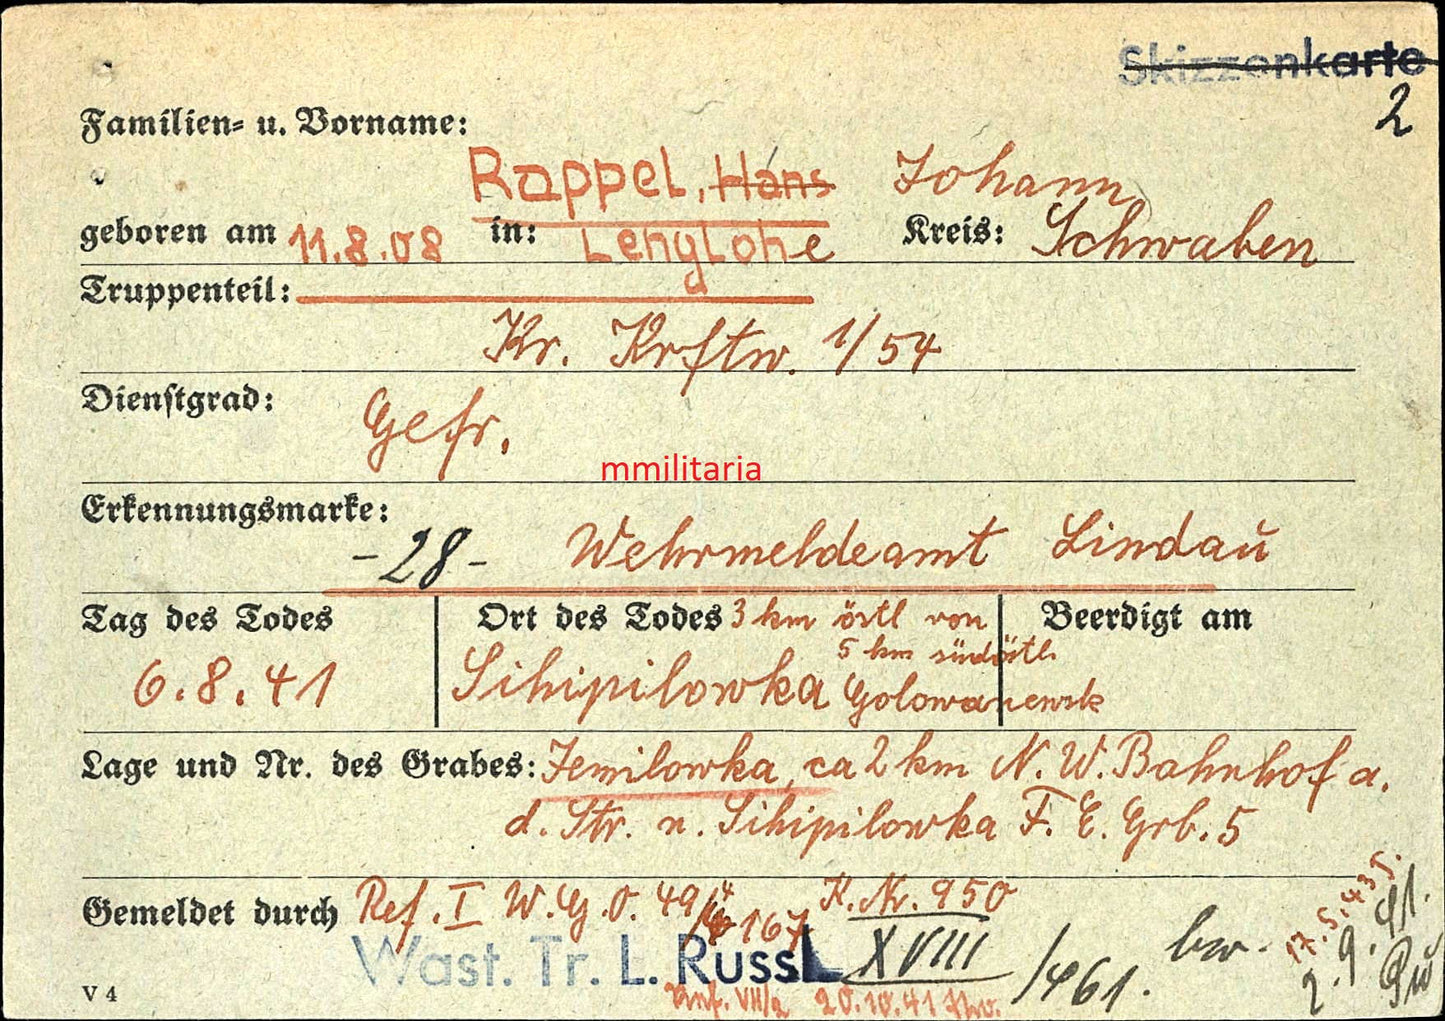 Skizzenkarte
2
Familien- u. Vorname:
Rappel, Hans Johann
geboren am 11.8.08 in: Lenglohe Kreis: Schwaben
Truppenteil:
Kr. Krftw. 1/54
Dienstgrad:
Gefr.
mmilitaria
Erkennungsmarke:
-28- Wehrmeldeamt Lindau
Tag des Todes Ort des Todes 3 km östl von Beerdigt am
5 km südöstl.
6.8.41 Sihipilowka Golowanewsk
Lage und Nr. des Grabes: Jemilowka, ca 2 km N.W. Bahnhof a.
d. Str. n. Sihipilowka F. E. Grb. 5
Gemeldet durch Ref. I W.G.O. 49/4 167 K. Nr. 950
17.5.43
Wast. Tr. L. Russl XVIII /461. bw. 2.9.41.
V 4 20.10.41